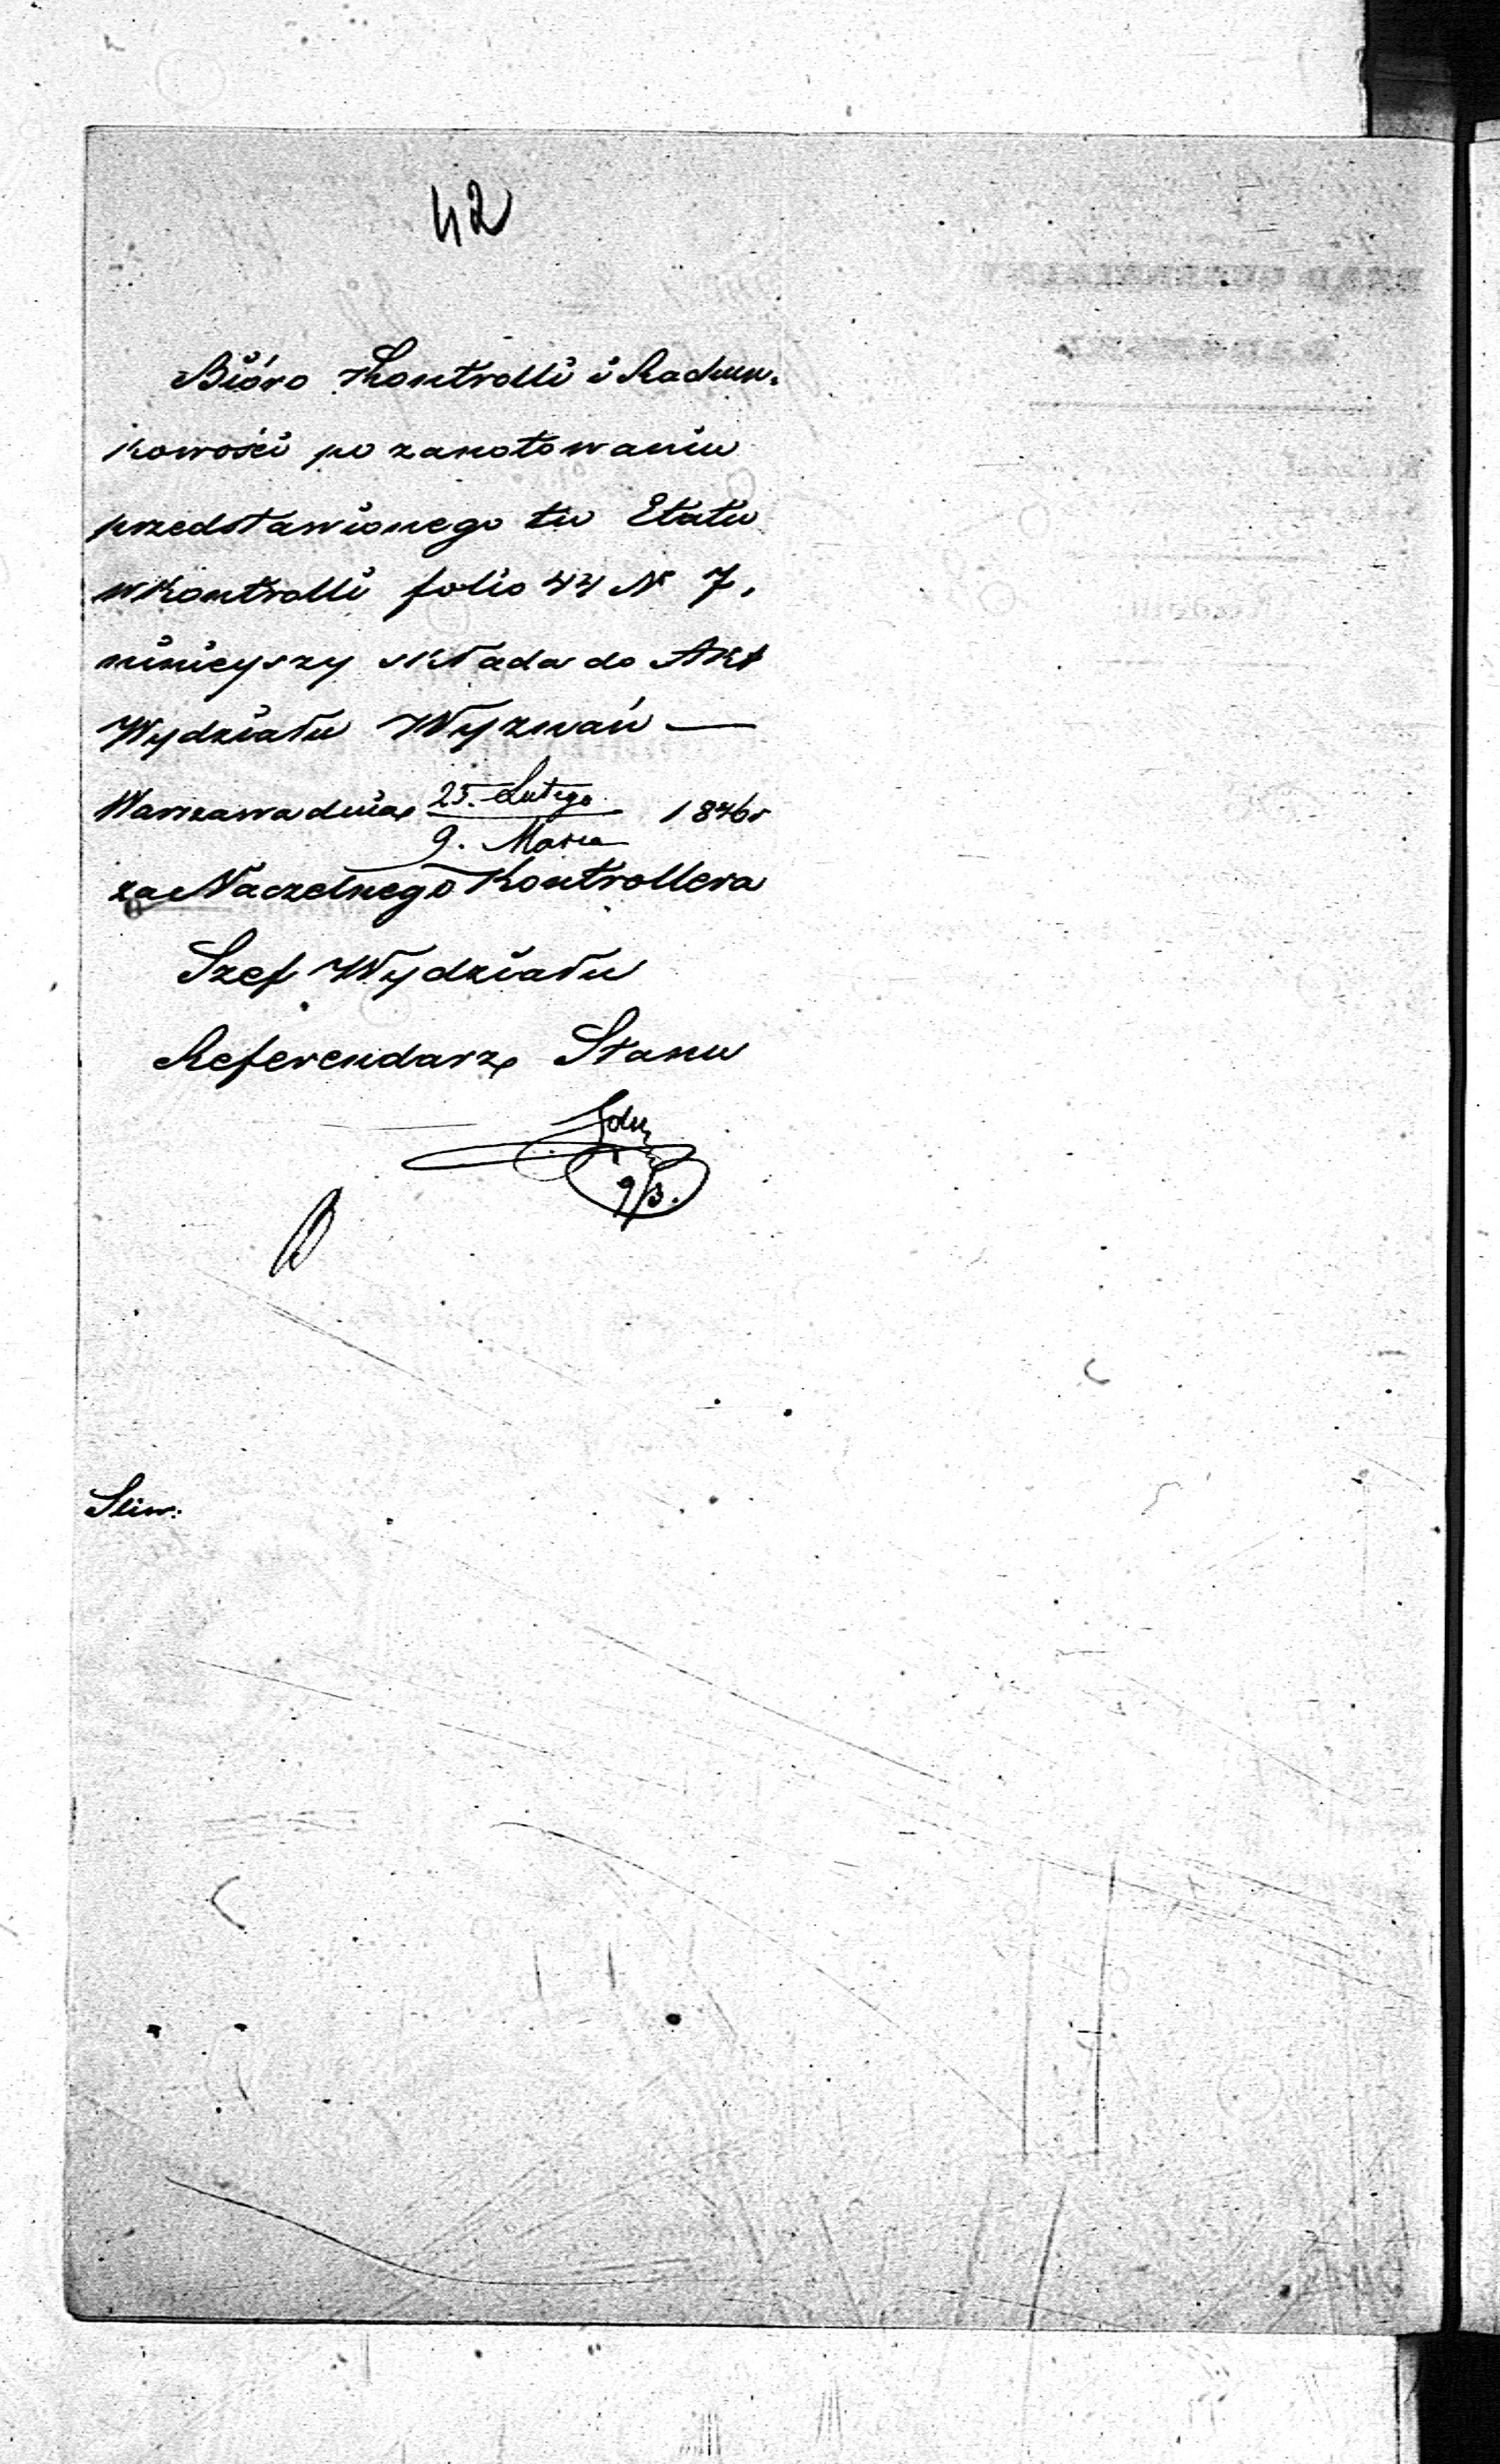 42
Bióro Kontrolli i Rachun-
kowości po zanotowaniu
przedstawionego tu Etatu
w Kontrolli folio 44 N 7,
ninieyszy składa do Akt
Wydziału Wyznań —
Warszawa dnia 25. Lutego 1846 r
9. Marca
za Naczelnego Kontrollera
Szef Wydziału
Referendarz Stanu
9/3.
Sliw: